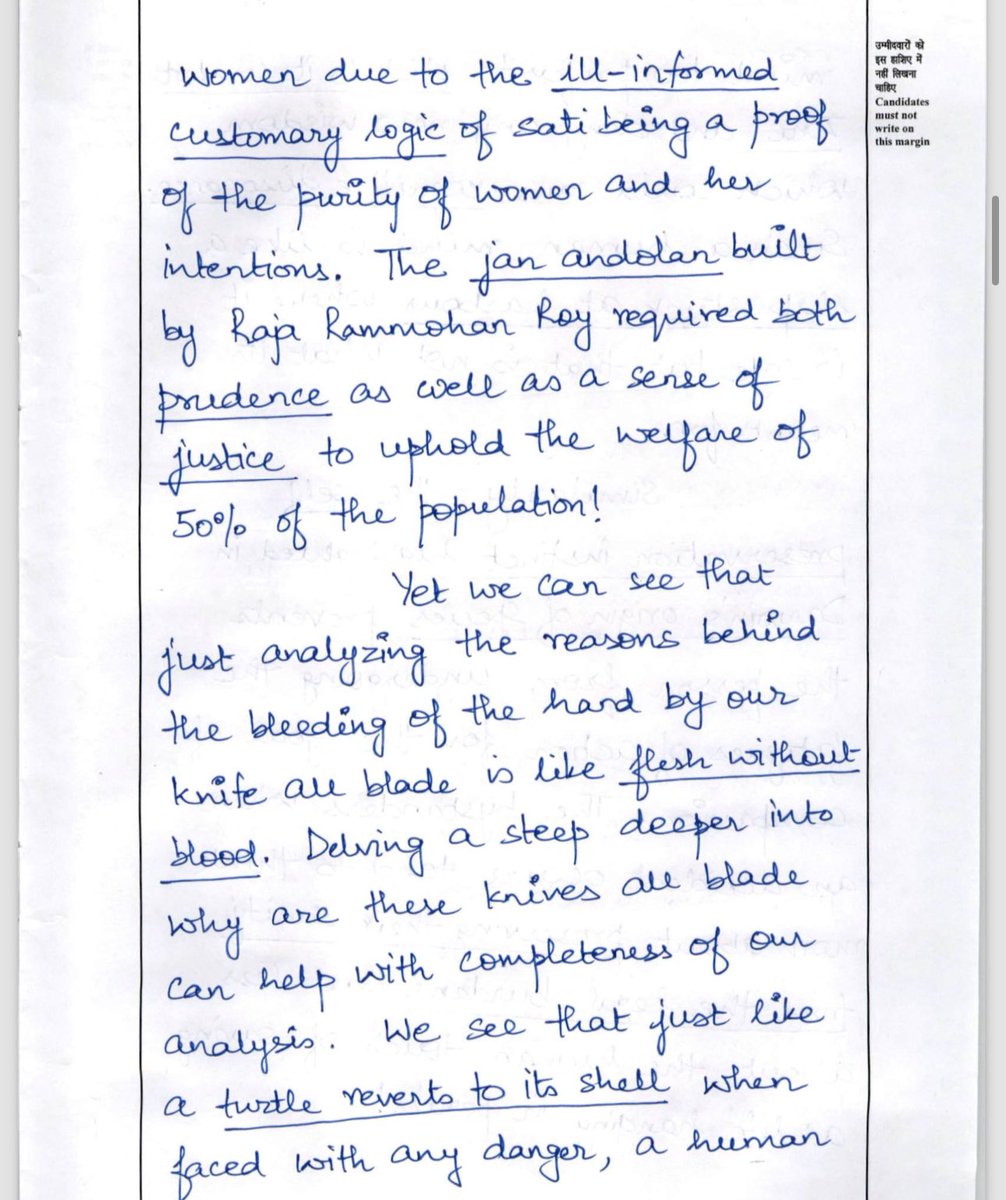 women due to the ill-informed
customary logic of sati being a proof
of the purity of women and her
intentions. The jan andolan built
by Raja Rammohan Roy required both
prudence as well as a sense of
justice to uphold the welfare of
50% of the population!
Yet we can see that
just analyzing the reasons behind
the bleeding of the hand by our
knife all blade is like flesh without
blood. Delving a steep deeper into
why are these knives all blade
can help with completeness of our
analysis. We see that just like
a turtle reverts to its shell when
faced with any danger, a human
उम्मीदवारों को
इस हाशिए में
नहीं लिखना
चाहिए
Candidates
must not
write on
this margin